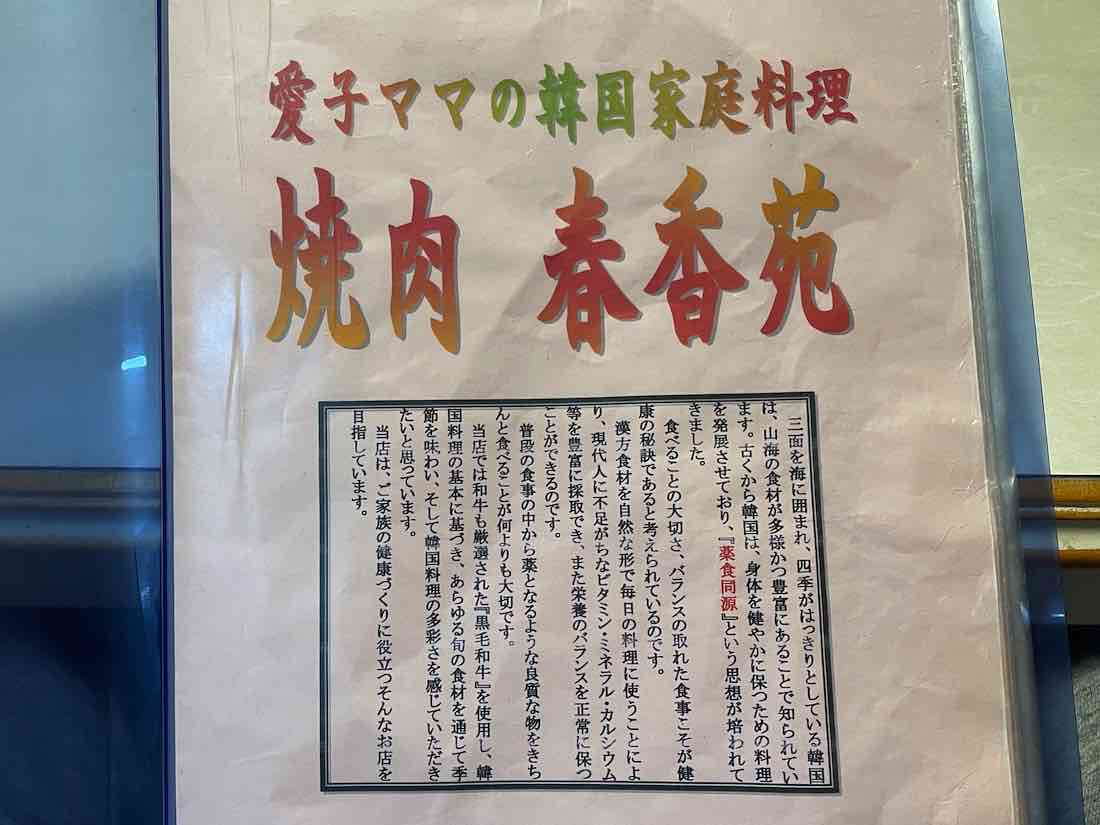 愛子ママの韓国家庭料理
焼肉 春香苑
三面を海に囲まれ、四季がはっきりとしている韓国
は、山海の食材が多様かつ豊富にあることで知られてい
ます。古くから韓国は、身体を健やかに保つための料理
を発展させており、『薬食同源』という思想が培われて
きました。
食べることの大切さ、バランスの取れた食事こそが健
康の秘訣であると考えられているのです。
漢方食材を自然な形で毎日の料理に使うことによ
り、現代人に不足がちなビタミン・ミネラル・カルシウム
等を豊富に採取でき、また栄養のバランスを正常に保つ
ことができるのです。
普段の食事の中から薬となるような良質な物をきち
んと食べることが何よりも大切です。
当店では和牛も厳選された『黒毛和牛』を使用し、韓
国料理の基本に基づき、あらゆる旬の食材を通じて季
節を味わい、そして韓国料理の多彩さを感じていただき
たいと思っています。
当店は、ご家族の健康づくりに役立つそんなお店を
目指しています。